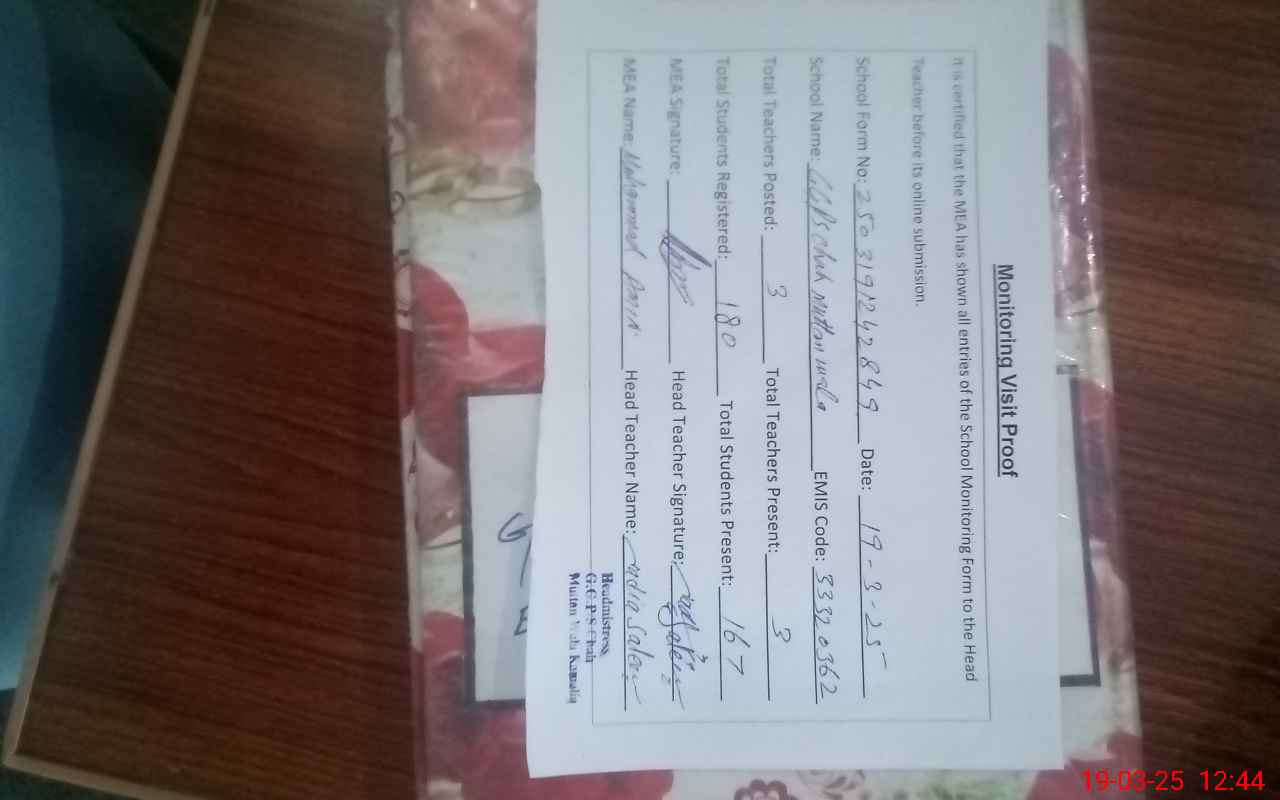 Monitoring Visit Proof
It is certified that the MEA has shown all entries of the School Monitoring Form to the Head
Teacher before its online submission.
School Form No: 2503191242849 Date: 19-3-25
School Name: GGPS Chak Multan wala EMIS Code: 33320362
Total Teachers Posted: 3 Total Teachers Present: 3
Total Students Registered: 180 Total Students Present: 167
MEA Signature: Head Teacher Signature:
MEA Name: Mohammad Amin Head Teacher Name: Nadia Saleem
Headmistress
G.G.P.S Chak
Multan Wala Kamalia
19-03-25 12:44